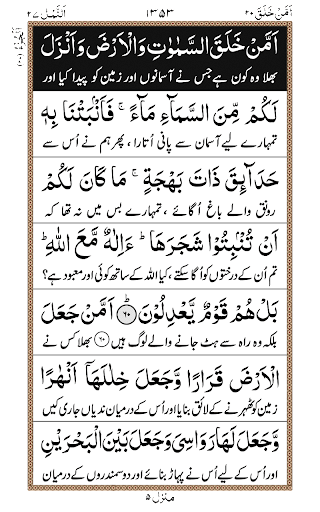 اَمَّنْ خَلَقَ ٢٠ ١٣٥٣ اَلنَّمْل ٢٧
اَمَّنْ خَلَقَ السَّمٰوٰتِ وَالْاَرْضَ وَاَنْزَلَ
بھلا وہ کون ہے جس نے آسمانوں اور زمین کو پیدا کیا اور
لَكُمْ مِّنَ السَّمَآءِ مَآءً ۚ فَاَنْۢبَتْنَا بِهٖ
تمہارے لیے آسمان سے پانی اُتارا، پھر ہم نے اُس سے
حَدَآئِقَ ذَاتَ بَهْجَةٍ ۚ مَا كَانَ لَكُمْ
رونق والے باغ اُگائے، تمہارے بس میں نہ تھا کہ
اَنْ تُنْۢبِتُوْا شَجَرَهَا ؕ ءَاِلٰهٌ مَّعَ اللّٰهِ ؕ
تم اُن کے درختوں کو اُگا سکتے، کیا اللہ کے ساتھ کوئی اور معبود ہے؟
بَلْ هُمْ قَوْمٌ يَّعْدِلُوْنَ ؕ ﴿٦٠﴾ اَمَّنْ جَعَلَ
بلکہ وہ راہ سے ہٹ جانے والے لوگ ہیں ﴿٦٠﴾ بھلا کس نے
الْاَرْضَ قَرَارًا وَّجَعَلَ خِلٰلَهَاۤ اَنْهٰرًا
زمین کو ٹھہرنے کے لائق بنایا اور اُس کے درمیان ندیاں جاری کیں
وَّجَعَلَ لَهَا رَوَاسِيَ وَجَعَلَ بَيْنَ الْبَحْرَيْنِ
اور اُس کے لیے اُس نے پہاڑ بنائے اور دو سمندروں کے درمیان
منزل ۵